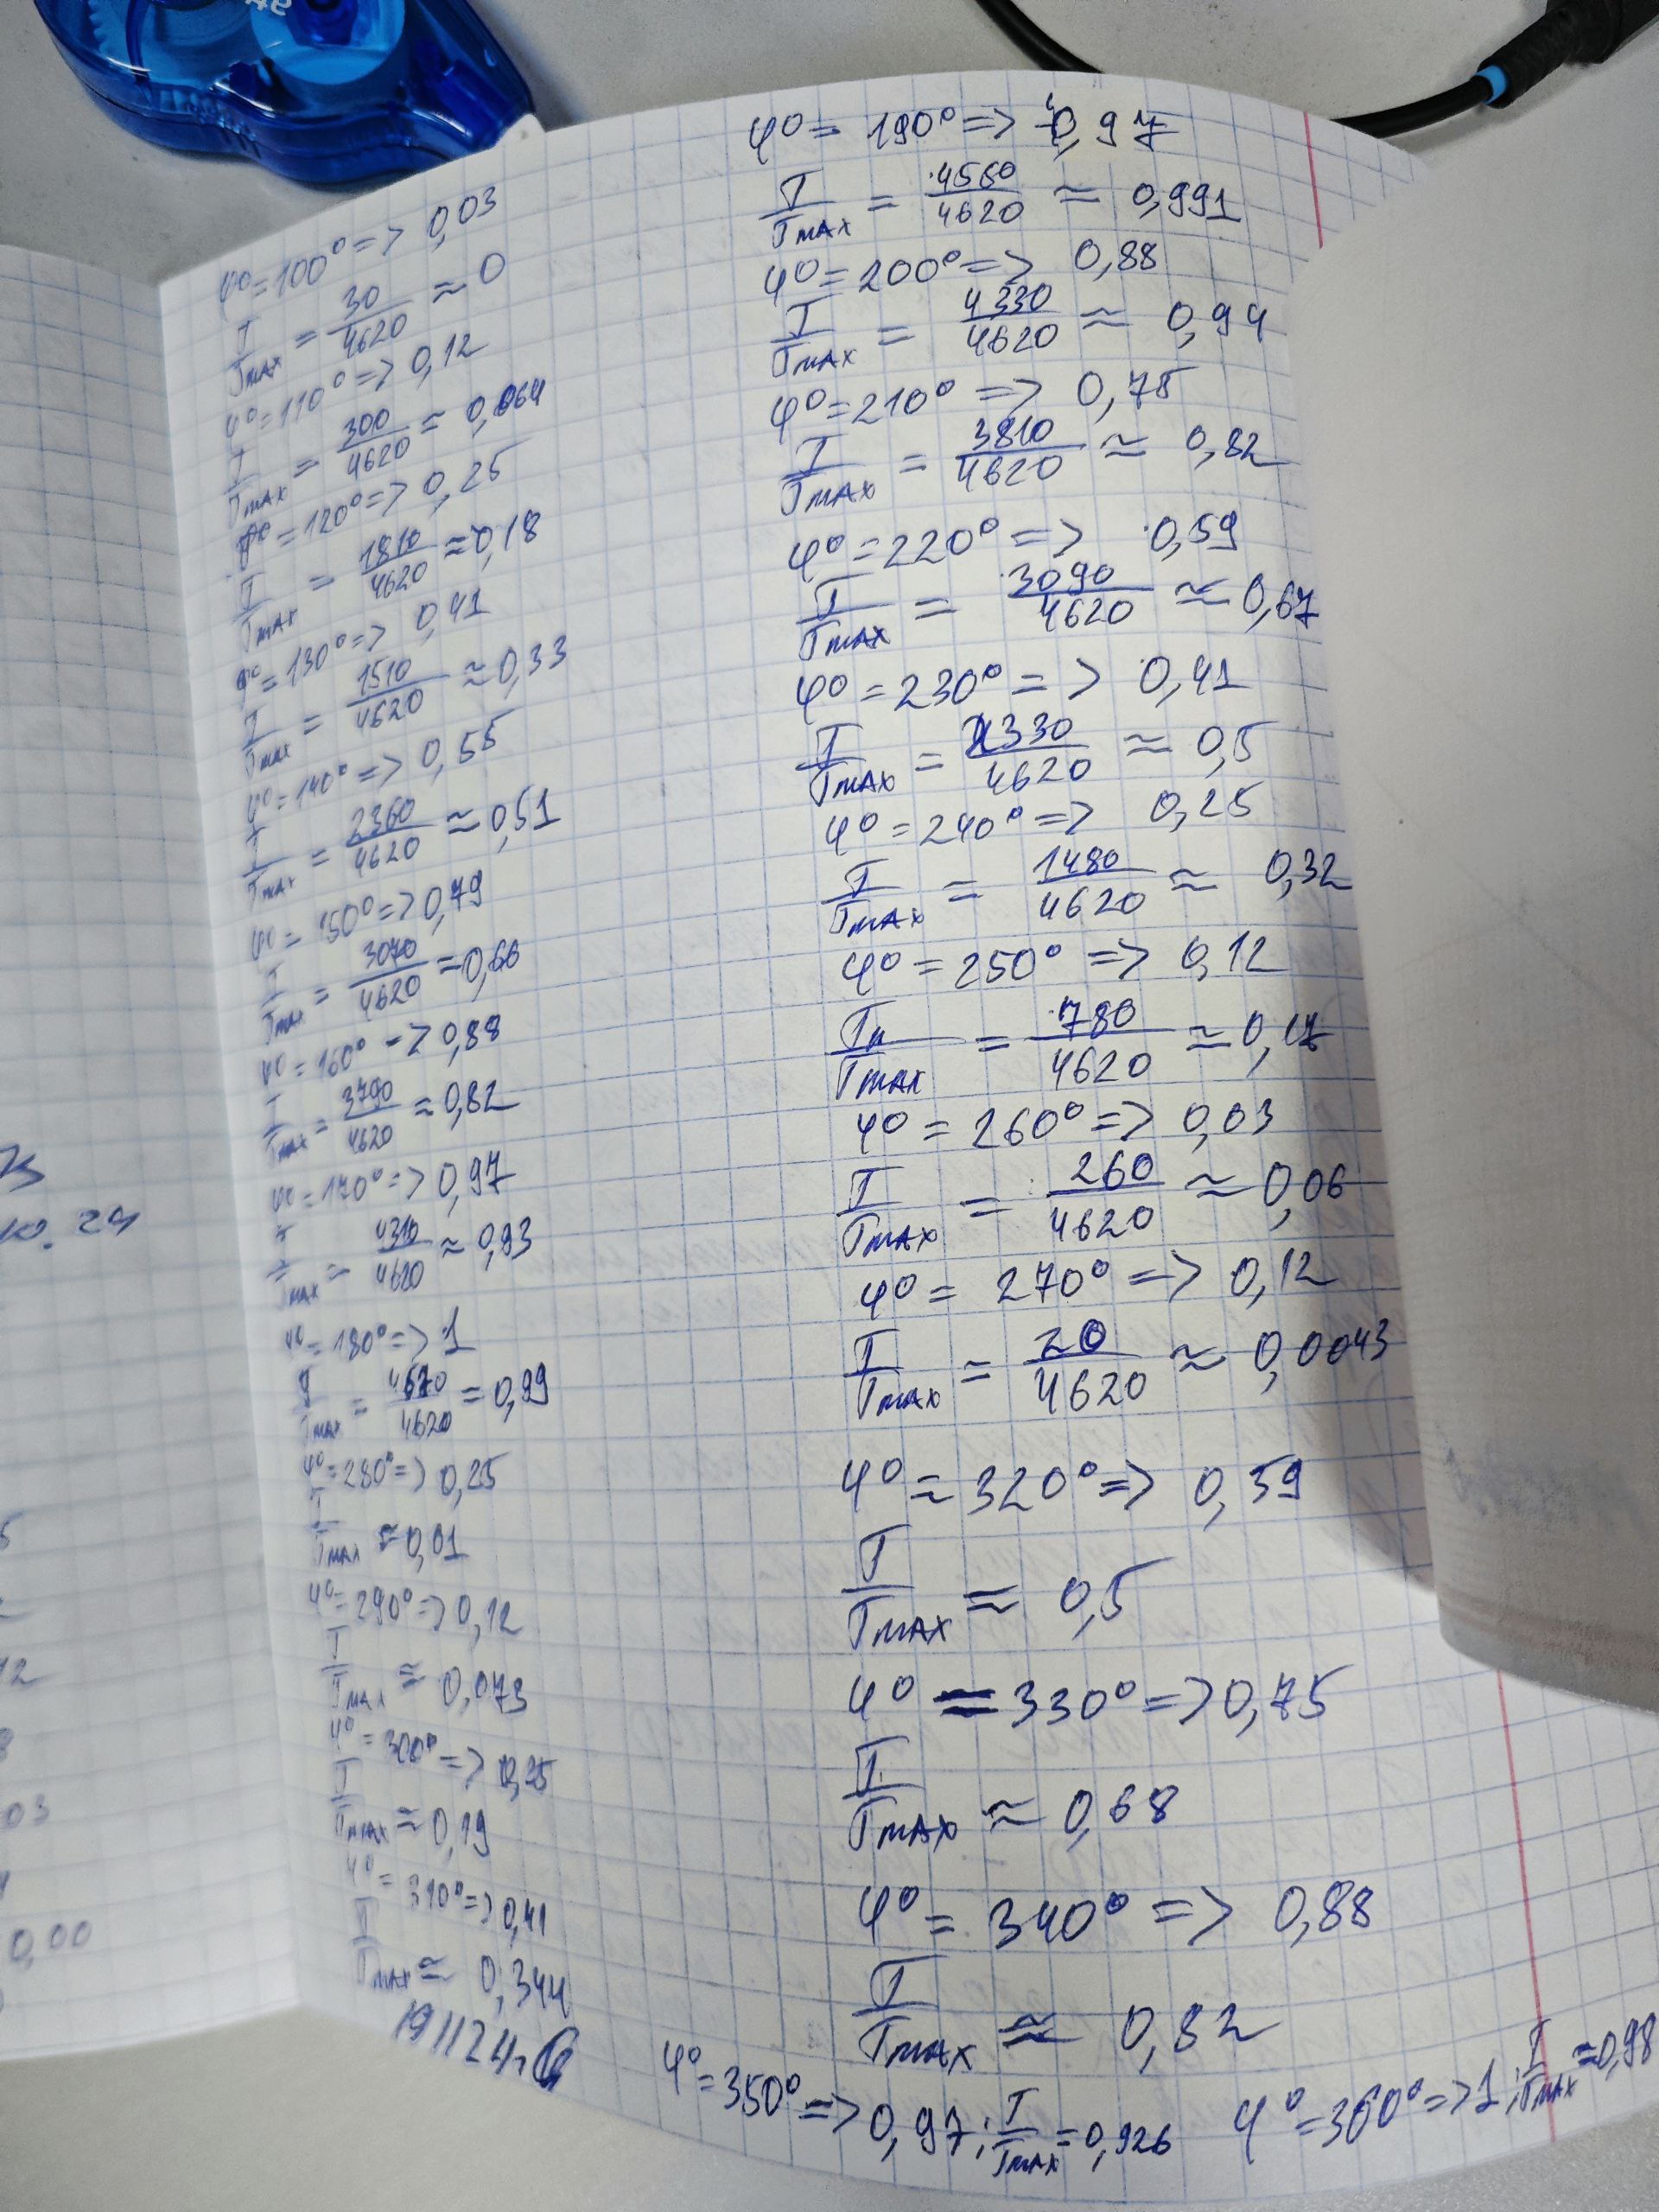 φ° = 100° => 0,03
I/Imax = 30/4620 ≈ 0
φ° = 110° => 0,12
I/Imax = 300/4620 ≈ 0,064
φ° = 120° => 0,25
I/Imax = 1810/4620 ≈ 0,18
φ° = 130° => 0,41
I/Imax = 1510/4620 ≈ 0,33
φ° = 140° => 0,55
I/Imax = 2360/4620 ≈ 0,51
φ° = 150° => 0,79
I/Imax = 3070/4620 = 0,66
φ° = 160° -> 0,88
I/Imax = 3790/4620 ≈ 0,82
φ° = 170° => 0,97
I/Imax = 4310/4620 ≈ 0,93
φ° = 180° => 1
I/Imax = 4620 = 0,99
φ° = 280° => 0,25
I/Imax ≈ 0,01
φ° = 290° => 0,12
I/Imax ≈ 0,073
φ° = 300° => 0,25
I/Imax ≈ 0,19
φ° = 310° => 0,41
I/Imax ≈ 0,344
191124
φ° = 190° => 0,97
I/Imax = 4580/4620 ≈ 0,991
φ° = 200° => 0,88
I/Imax = 4330/4620 ≈ 0,94
φ° = 210° => 0,75
I/Imax = 3810/4620 ≈ 0,82
φ° = 220° => 0,59
I/Imax = 3090/4620 ≈ 0,67
φ° = 230° => 0,41
I/Imax = 2330/4620 ≈ 0,5
φ° = 240° => 0,25
I/Imax = 1480/4620 ≈ 0,32
φ° = 250° => 0,12
Iн/Imax = 780/4620 ≈ 0,17
φ° = 260° => 0,03
I/Imax = 260/4620 ≈ 0,06
φ° = 270° => 0,12
I/Imax = 20/4620 ≈ 0,0043
φ° = 320° => 0,59
I/Imax ≈ 0,5
φ° = 330° => 0,75
I/Imax ≈ 0,68
φ° = 340° => 0,88
I/Imax ≈ 0,82
φ° = 350° => 0,97; I/Imax = 0,926
φ° = 360° => 1; I/Imax ≈ 0,98
10.24
12
03
0,00